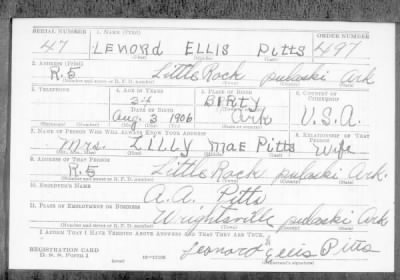 SERIAL NUMBER 1. NAME (Print) ORDER NUMBER
47 LENORD ELLIS PITTS 497
(First) (Middle) (Last)
2. ADDRESS (Print)
R.5 Little Rock pulaski Ark
(Number and street or R. F. D. number) (Town) (County) (State)
3. TELEPHONE 4. AGE IN YEARS 5. PLACE OF BIRTH 6. COUNTRY OF CITIZENSHIP
34 BIRTY
DATE OF BIRTH
Aug. 3 1906 Ark U.S.A.
(Mo.) (Day) (Yr.)
7. NAME OF PERSON WHO WILL ALWAYS KNOW YOUR ADDRESS 8. RELATIONSHIP OF THAT PERSON
Mrs. LILLY MAE Pitts Wife
(Mr., Mrs., Miss) (First) (Middle) (Last)
9. ADDRESS OF THAT PERSON
R.5 Little Rock pulaski Ark.
(Number and street or R. F. D. number) (Town) (County) (State)
10. EMPLOYER'S NAME
A.A. Pitts
11. PLACE OF EMPLOYMENT OR BUSINESS
Wrightsville pulaski Ark
(Number and street or R. F. D. number) (Town) (County) (State)
I AFFIRM THAT I HAVE VERIFIED ABOVE ANSWERS AND THAT THEY ARE TRUE.
REGISTRATION CARD
D. S. S. Form 1 (over) 16-17105 Leonard Ellis Pitts
(Registrant's signature)